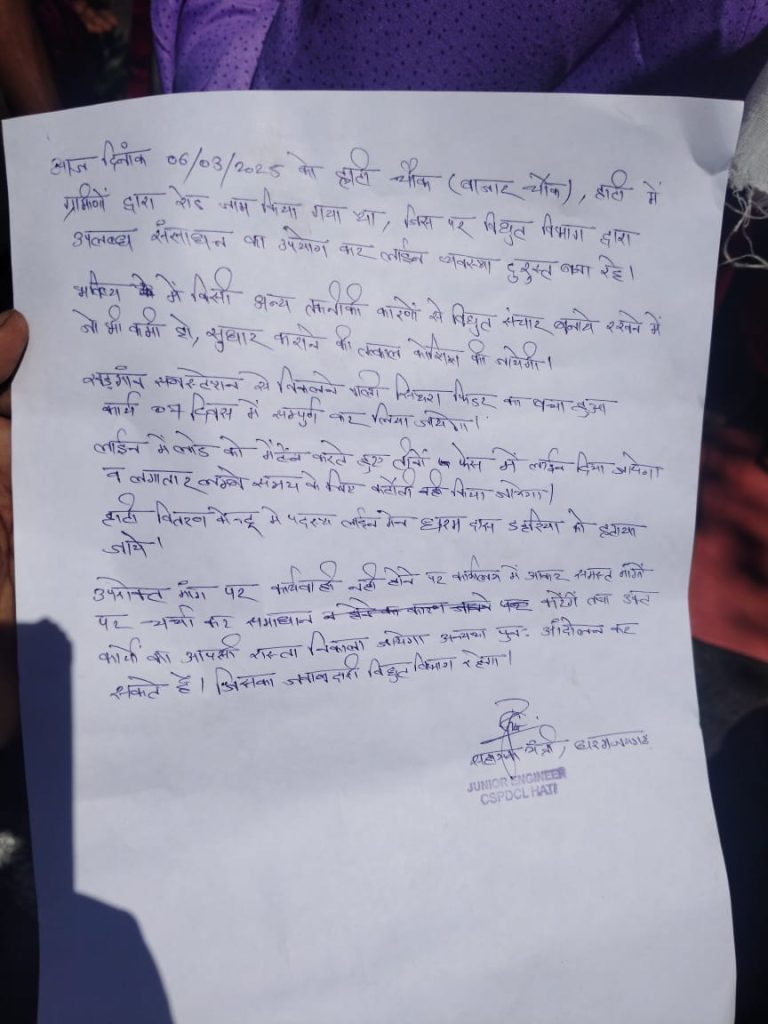 आज दिनांक 06/03/2025 को हाटी चौक (बाजार चौक), हाटी में
ग्रामिणों द्वारा रोड जाम किया गया था, जिस पर विद्युत विभाग द्वारा
उपलब्ध संसाधन का उपयोग कर लाईन व्यवस्था दुरुस्त बना रहे।
भविष्य में किसी अन्य तकनीकी कारणों से विद्युत संचार बनाये रखने में
जो भी कमी हो, सुधार कराने की तत्काल कोशिश की जायेगी।
सबस्टेशन से निकलने वाली फिडर का बचा हुआ
कार्य 07 दिवस में सम्पुर्ण कर लिया जायेगा।
लाईन में लोड को मैंटेन करते हुए तीनों फेस में लाईन दिया जायेगा
व लगातार लम्बे समय के लिए कटौती नही किया जायेगा।
हाटी वितरण केन्द्र में पदस्थ लाईन मेन धरम दास डहरिया को हटाया
जाये।
उपरोक्त मांग पर कार्यवाही नही होने पर कार्यालय में आकर समस्त मांगों
पर चर्चा कर समाधान करेंगें तथा उक्त
कार्यो का आपसी रास्ता निकाला जायेगा अन्यथा पुनः आंदोलन कर
सकते है। जिसका जवाबदारी विद्युत विभाग रहेगा।
यंत्री, धरमजयगढ़
JUNIOR ENGINEER
CSPDCL HATI